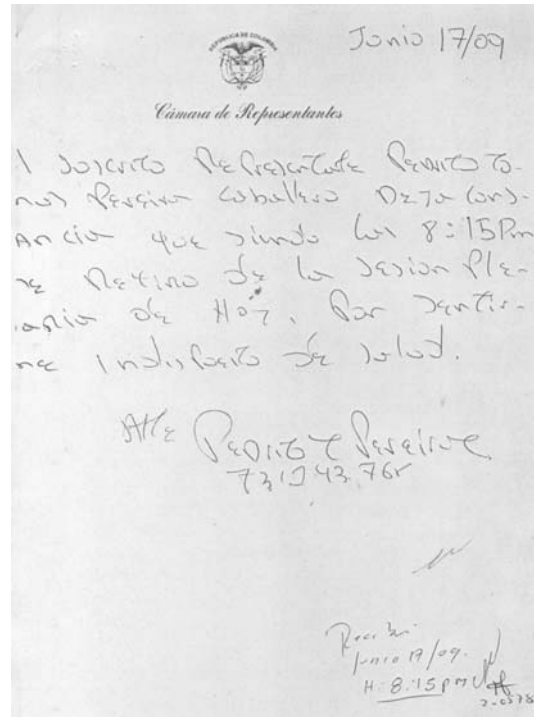 REPUBLICA DE COLOMBIA
Junio 17/09
Cámara de Representantes
l suscrito Representante Pedrito To-
mas Pereira Caballero Deja Cons-
ancia que siendo las 8:15Pm
me Retiro de la sesion Ple-
naria de Hoy, Por sentir-
me indispuesto de salud.
Atte Pedrito T Pereira C
Recibi:
Junio 17/09.
H: 8:15 pm